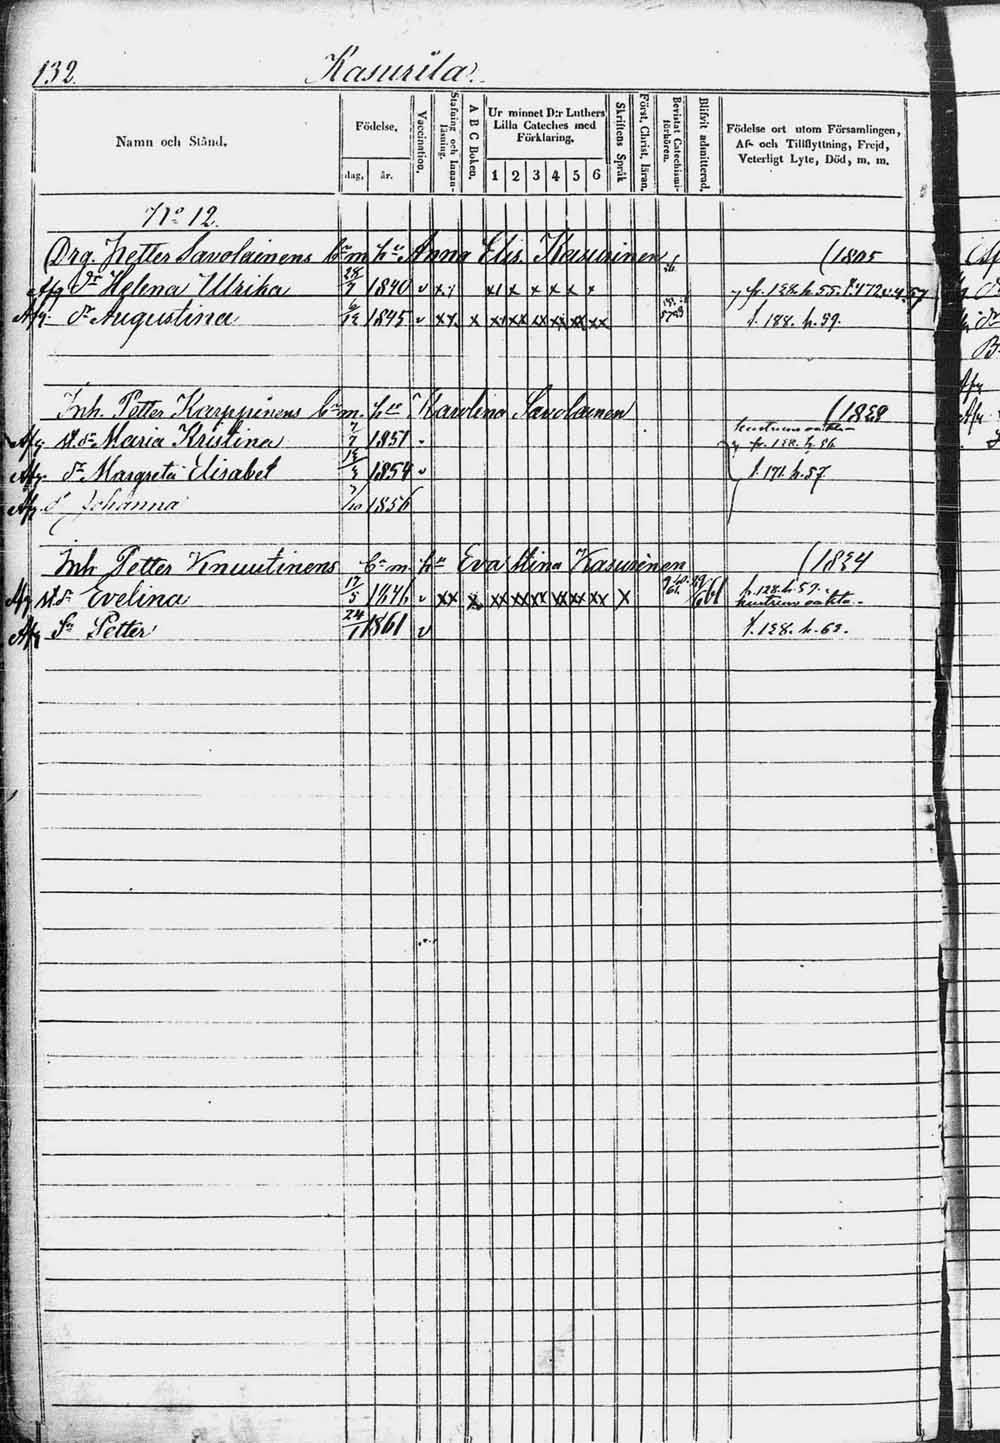 132. Kasurila.
Namn och Stånd.
Födelse,
dag, år.
Vaccination.
Stafning och Innanläsning.
A B C Boken.
Ur minnet D:r Luthers Lilla Cateches med Förklaring.
1 2 3 4 5 6
Skriftens Språk
Först. Christ. läran.
Bevistat Catechismiförhören.
Blifvit admitterad.
Födelse ort utom Församlingen,
Af- och Tillflyttning, Frejd,
Veterligt Lyte, Död, m. m.
No 12.
Drg. Petter Savolainens b:n m. h:u Anna Elis. Kasurinen
Afg d:r Helena Ulrika 28/7 1840 v xx x x x x x x
Afg. d:r Augustina 1845 v xx x xx xx xx xx xx xx f. 188. h. 59.
Inh. Petter Karppinens b:n m. h:u Karolina Savolainen
Afg st. d:r Maria Kristina 7/7 1851
Afg. d:r Margreta Elisabet 1854 v f. 171. h. 57.
Afg. d:r Johanna 7/10 1856
Inh Petter Knuutinens b:n m. h:u Eva Stina Kasurinen
Afg st. d:r Evelina 17/5 v xx x xx xx xx xx xx xx x
Afg S:n Petter 24/1 1861 v